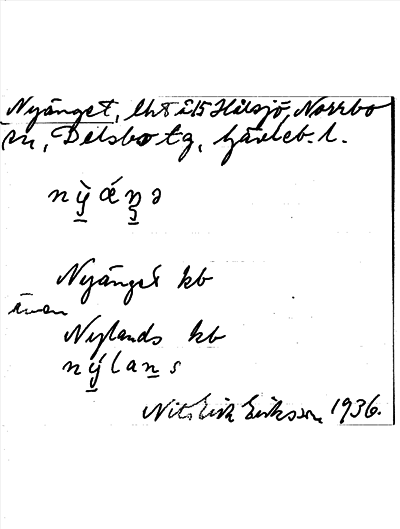 Nyänget, lht å 15 Hålsjö, Norrbo
sn, Delsbo tg, Gävleb. l.
nỳǽŋə
Nyänget kb
även
Nylands kb
nýlans
Nils Erik Eriksson 1936.